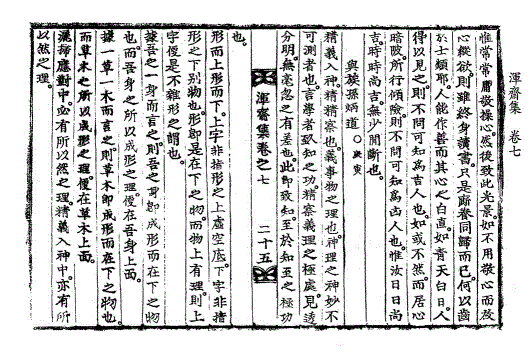 渾齋集 卷七
惟常常用敬操心然後致此光景如不用敬心而放
心縱欲則雖終身讀書只是廝養同歸而已何以齒
於士類耶人能作善而其心之白直如青天白日人
得以見之則不問可知爲吉人也如或不然而居心
暗昧所行傾險則不問可知爲凶人也惟汝日日尚
吉時時尚吉無少間斷也
與族孫炳道
精義入神精精察也義事物之理也神理之神妙不
可測者也言學者致知之功精察義理之極處見透
分明無毫忽之有差也此即致知至於知至之極功
渾齋集卷之七 二十五
也
形而上形而下上字非指形之上虛空底下字非指
形之下別物也形即是在下之物而物上有理則上
字便是不雜形之謂也
據吾之一身而言之則吾之身即成形而在下之物
也而吾身之所以成形之理便在吾身上面
據一草一木而言之則草木即成形而在下之物也
而草木之所以成形之理便在草木上面
灑掃應對中必有所以然之理精義入神中亦有所
以然之理